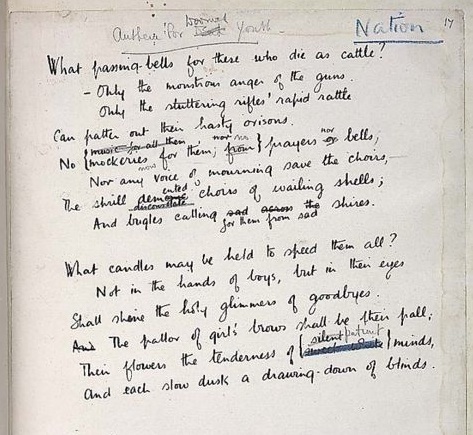 Anthem for Dead Doomed Youth
Nation 17
What passing-bells for these who die as cattle?
– Only the monstrous anger of the guns.
Only the stuttering rifles' rapid rattle
Can patter out their hasty orisons.
music for all them nor no
No { mockeries now for them; from } prayers nor or bells;
Nor any voice of mourning save the choirs,—
The shrill demented choirs of wailing shells;
disconsolate
And bugles calling sad across the shires.
for them from sad
What candles may be held to speed them all?
Not in the hands of boys, but in their eyes
Shall shine the holy glimmers of goodbyes.
And The pallor of girls' brows shall be their pall;
silent patient
Their flowers the tenderness of { } minds,
And each slow dusk a drawing-down of blinds.